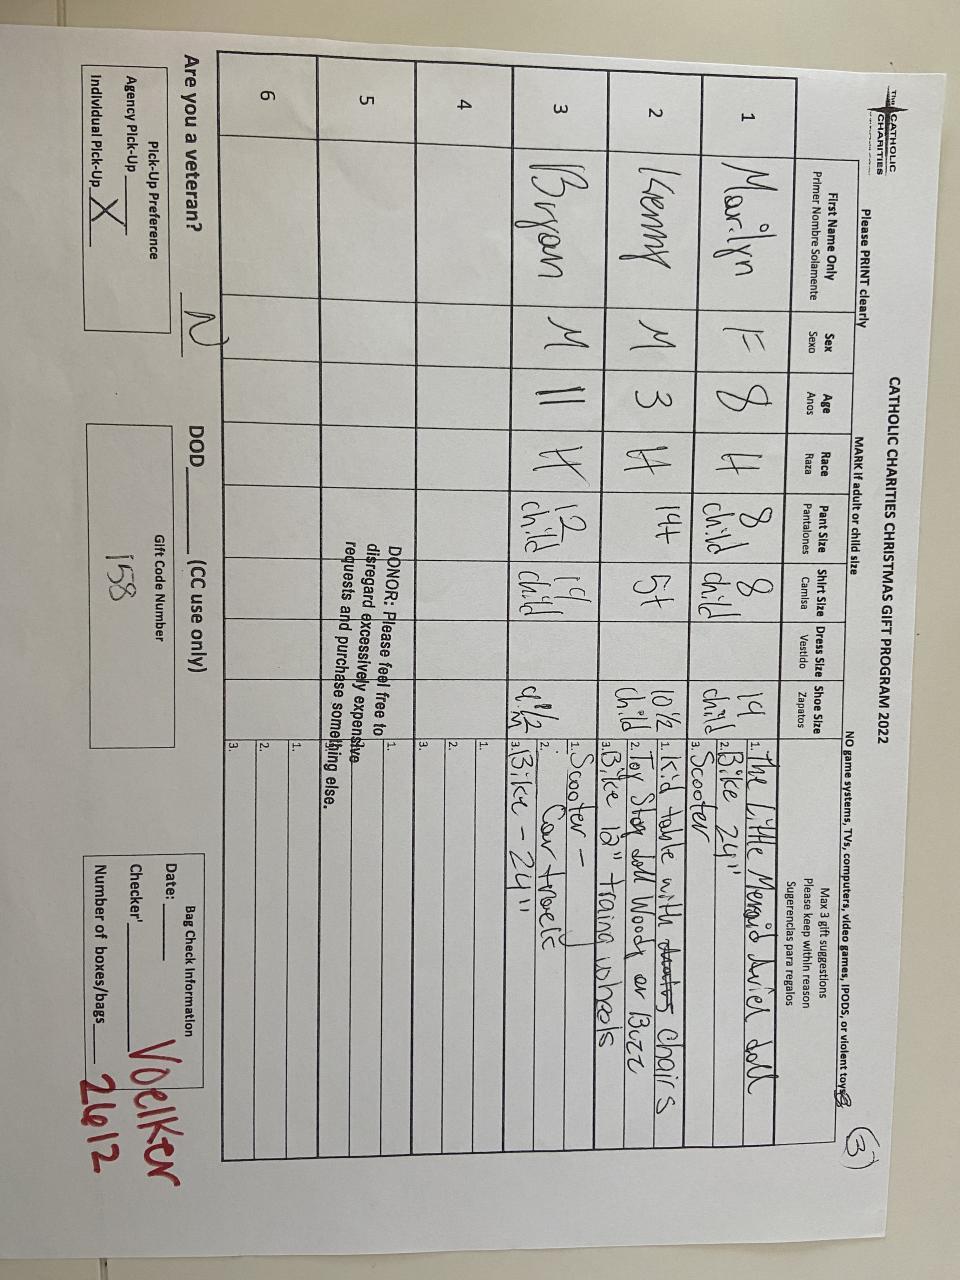 The CATHOLIC
CHARITIES
CATHOLIC CHARITIES CHRISTMAS GIFT PROGRAM 2022
(3)
Please PRINT clearly MARK if adult or child size NO game systems, TVs, computers, video games, IPODS, or violent toys
First Name Only Sex Age Race Pant Size Shirt Size Dress Size Shoe Size Max 3 gift suggestions
Primer Nombre Solamente Sexo Anos Raza Pantalones Camisa Vestido Zapatos Please keep within reason
Sugerencias para regalos
1 Marilyn F 8 H 8 child 8 child 14 child 1. The Little Mermaid Ariel doll
2. Bike 24"
3. Scooter
2 Kenny M 3 H 14t 5t 10 1/2 child 1. Kid table with chairs
2. Toy Story doll Woody or Buzz
3. Bike 12" traing wheels
3 Bryan M 11 H 12 child 14 child 9 1/2 M 1. Scooter -
2.
3. Bike - 24"
4 1.
2.
3.
5 1.
2.
3.
DONOR: Please feel free to
disregard excessively expensive
requests and purchase something else.
6 1.
2.
3.
Are you a veteran? N DOD____ (CC use only)
Pick-Up Preference
Agency Pick-Up____
Individual Pick-Up X
Gift Code Number
158
Bag Check Information
Date: ____
Checker'____
Number of boxes/bags____
Voelker
2612